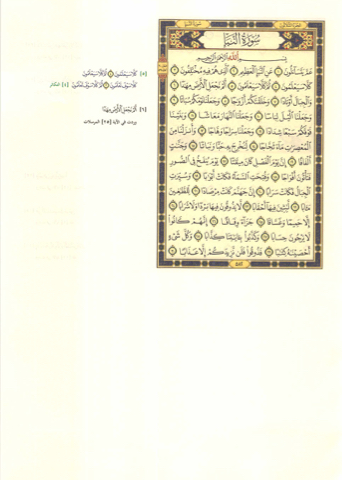 سُورَةُ النَّبَإِ
بِسْمِ اللَّهِ الرَّحْمَٰنِ الرَّحِيمِ
عَمَّ يَتَسَاءَلُونَ ۝ عَنِ النَّبَإِ الْعَظِيمِ ۝ الَّذِي هُمْ فِيهِ مُخْتَلِفُونَ ۝
كَلَّا سَيَعْلَمُونَ ۝ ثُمَّ كَلَّا سَيَعْلَمُونَ ۝ أَلَمْ نَجْعَلِ الْأَرْضَ مِهَادًا ۝
وَالْجِبَالَ أَوْتَادًا ۝ وَخَلَقْنَاكُمْ أَزْوَاجًا ۝ وَجَعَلْنَا نَوْمَكُمْ سُبَاتًا ۝
وَجَعَلْنَا اللَّيْلَ لِبَاسًا ۝ وَجَعَلْنَا النَّهَارَ مَعَاشًا ۝ وَبَنَيْنَا
فَوْقَكُمْ سَبْعًا شِدَادًا ۝ وَجَعَلْنَا سِرَاجًا وَهَّاجًا ۝ وَأَنْزَلْنَا مِنَ
الْمُعْصِرَاتِ مَاءً ثَجَّاجًا ۝ لِنُخْرِجَ بِهِ حَبًّا وَنَبَاتًا ۝ وَجَنَّاتٍ
أَلْفَافًا ۝ إِنَّ يَوْمَ الْفَصْلِ كَانَ مِيقَاتًا ۝ يَوْمَ يُنْفَخُ فِي الصُّورِ
فَتَأْتُونَ أَفْوَاجًا ۝ وَفُتِحَتِ السَّمَاءُ فَكَانَتْ أَبْوَابًا ۝ وَسُيِّرَتِ
الْجِبَالُ فَكَانَتْ سَرَابًا ۝ إِنَّ جَهَنَّمَ كَانَتْ مِرْصَادًا ۝ لِلطَّاغِينَ
مَآبًا ۝ لَابِثِينَ فِيهَا أَحْقَابًا ۝ لَا يَذُوقُونَ فِيهَا بَرْدًا وَلَا شَرَابًا ۝
إِلَّا حَمِيمًا وَغَسَّاقًا ۝ جَزَاءً وِفَاقًا ۝ إِنَّهُمْ كَانُوا
لَا يَرْجُونَ حِسَابًا ۝ وَكَذَّبُوا بِآيَاتِنَا كِذَّابًا ۝ وَكُلَّ شَيْءٍ
أَحْصَيْنَاهُ كِتَابًا ۝ فَذُوقُوا فَلَنْ نَزِيدَكُمْ إِلَّا عَذَابًا ۝
[٥] كَلَّا سَيَعْلَمُونَ ۝ ثُمَّ كَلَّا سَيَعْلَمُونَ
كَلَّا سَوْفَ تَعْلَمُونَ ۝ ثُمَّ كَلَّا سَوْفَ تَعْلَمُونَ [٤] التكاثر
[٦] أَلَمْ نَجْعَلِ الْأَرْضَ مِهَادًا
وردت في الآية [٢٥] المرسلات